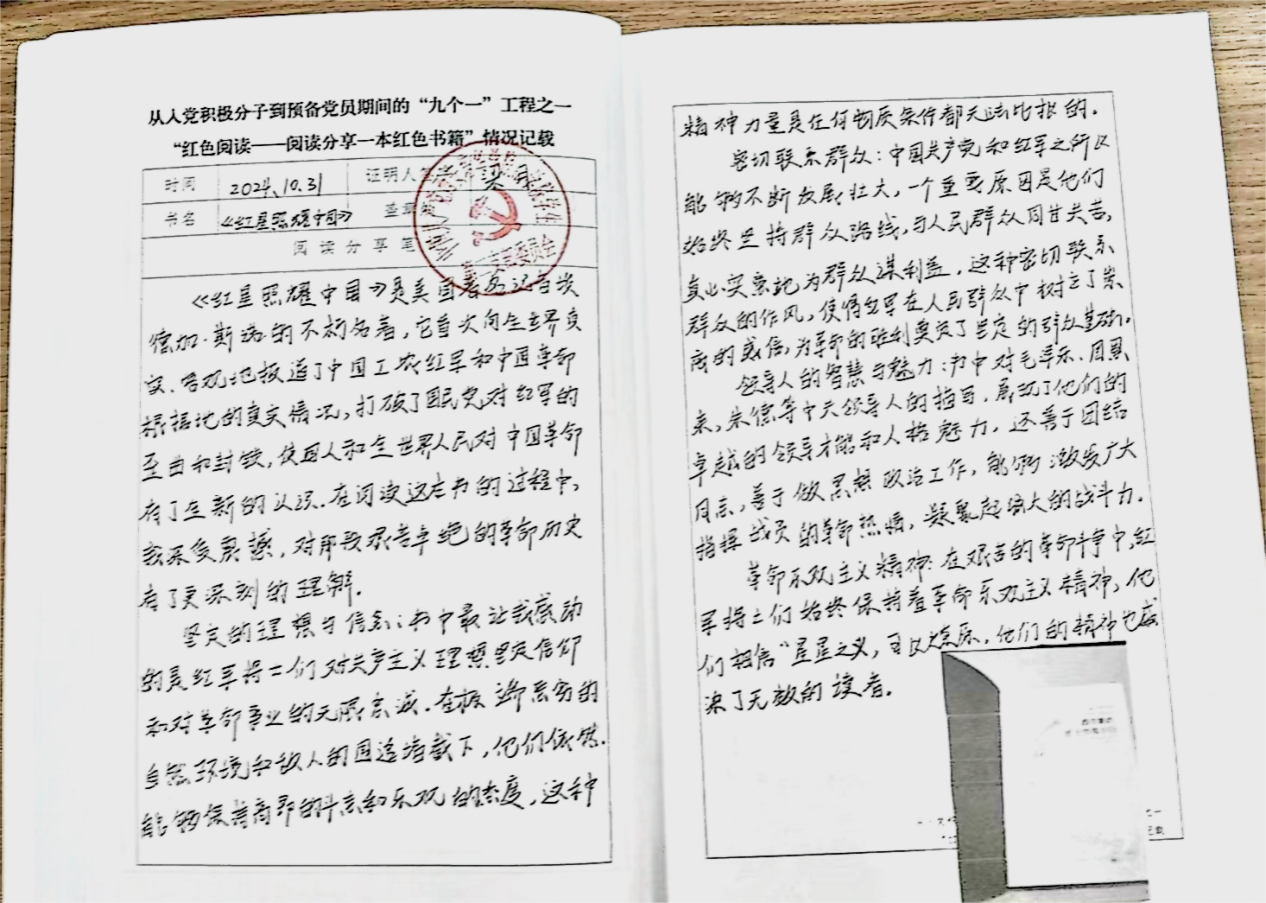 从入党积极分子到预备党员期间的“九个一”工程之一
“红色阅读——阅读分享一本红色书籍”情况记载
时间 2024.10.31 证明人签字
书名 《红星照耀中国》 盖章
阅读分享笔
《红星照耀中国》是美国著名记者埃
德加·斯诺的不朽名著，它首次向全世界真
实、客观地报道了中国工农红军和中国革命
根据地的真实情况，打破了国民党对红军的
歪曲和封锁，使国人和全世界人民对中国革命
有了全新的认识。在阅读这本书的过程中，
我深受震撼，对那段艰苦卓绝的革命历史
有了更深刻的理解。
坚定的理想与信念：书中最让我感动
的是红军将士们对共产主义理想坚定信仰
和对革命事业的无限忠诚。在极端恶劣的
自然环境和敌人的围追堵截下，他们依然
能够保持高昂的斗志和乐观的态度，这种
精神力量是任何物质条件都无法比拟的。
密切联系群众：中国共产党和红军之所以
能够不断发展壮大，一个重要原因是他们
始终坚持群众路线，与人民群众同甘共苦，
真心实意地为群众谋利益，这种密切联系
群众的作风，使得红军在人民群众中树立了崇
高的威信，为革命的胜利奠定了坚定的群众基础。
领导人的智慧与魅力：书中对毛泽东、周恩
来，朱德等中共领导人的描写，展现了他们的
卓越的领导才能和人格魅力，还善于团结
同志，善于做思想政治工作，能够激发广大
指挥战员的革命热情，凝聚起强大的战斗力。
革命乐观主义精神：在艰苦的革命斗争中，红
军将士们始终保持着革命乐观主义精神，他
们相信“星星之火，可以燎原，他们的精神也感
染了无数的读者。